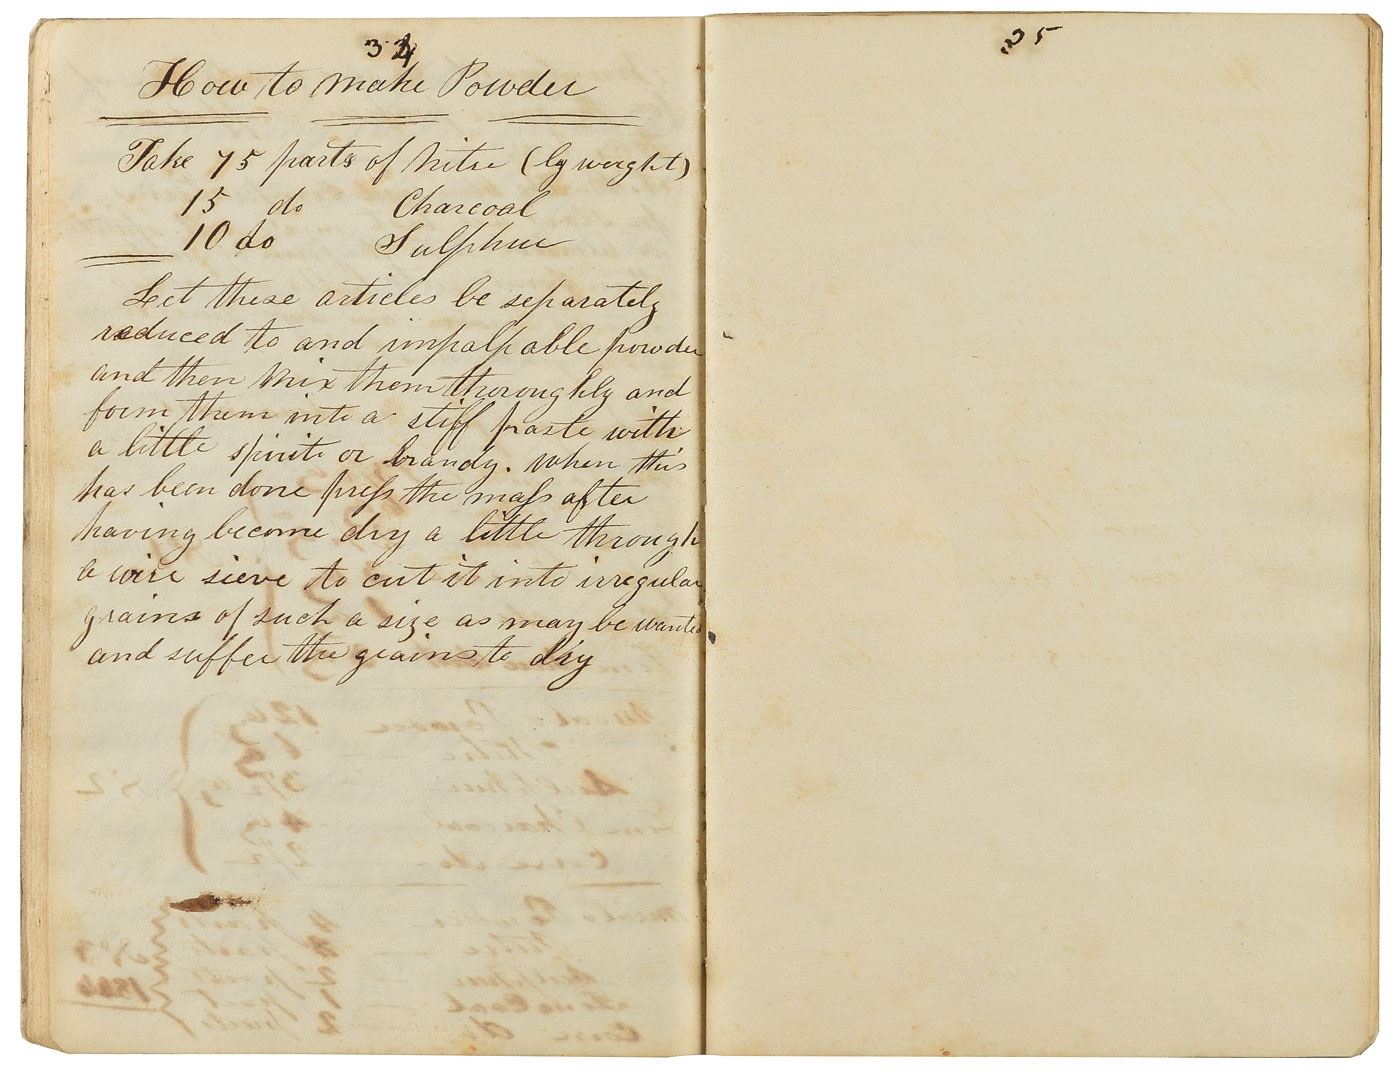 34
How to make Powder
Take 75 parts of Nitre (by weight)
15 do Charcoal
10 do Sulphur
Let these articles be separately
reduced to and impalpable powder
and then Mix them thoroughly and
form them into a stiff paste with
a little spirits or brandy. When this
has been done press the mass after
having become dry a little through
a wire sieve to cut it into irregular
grains of such a size as may be wanted
and suffer the grains to dry
35